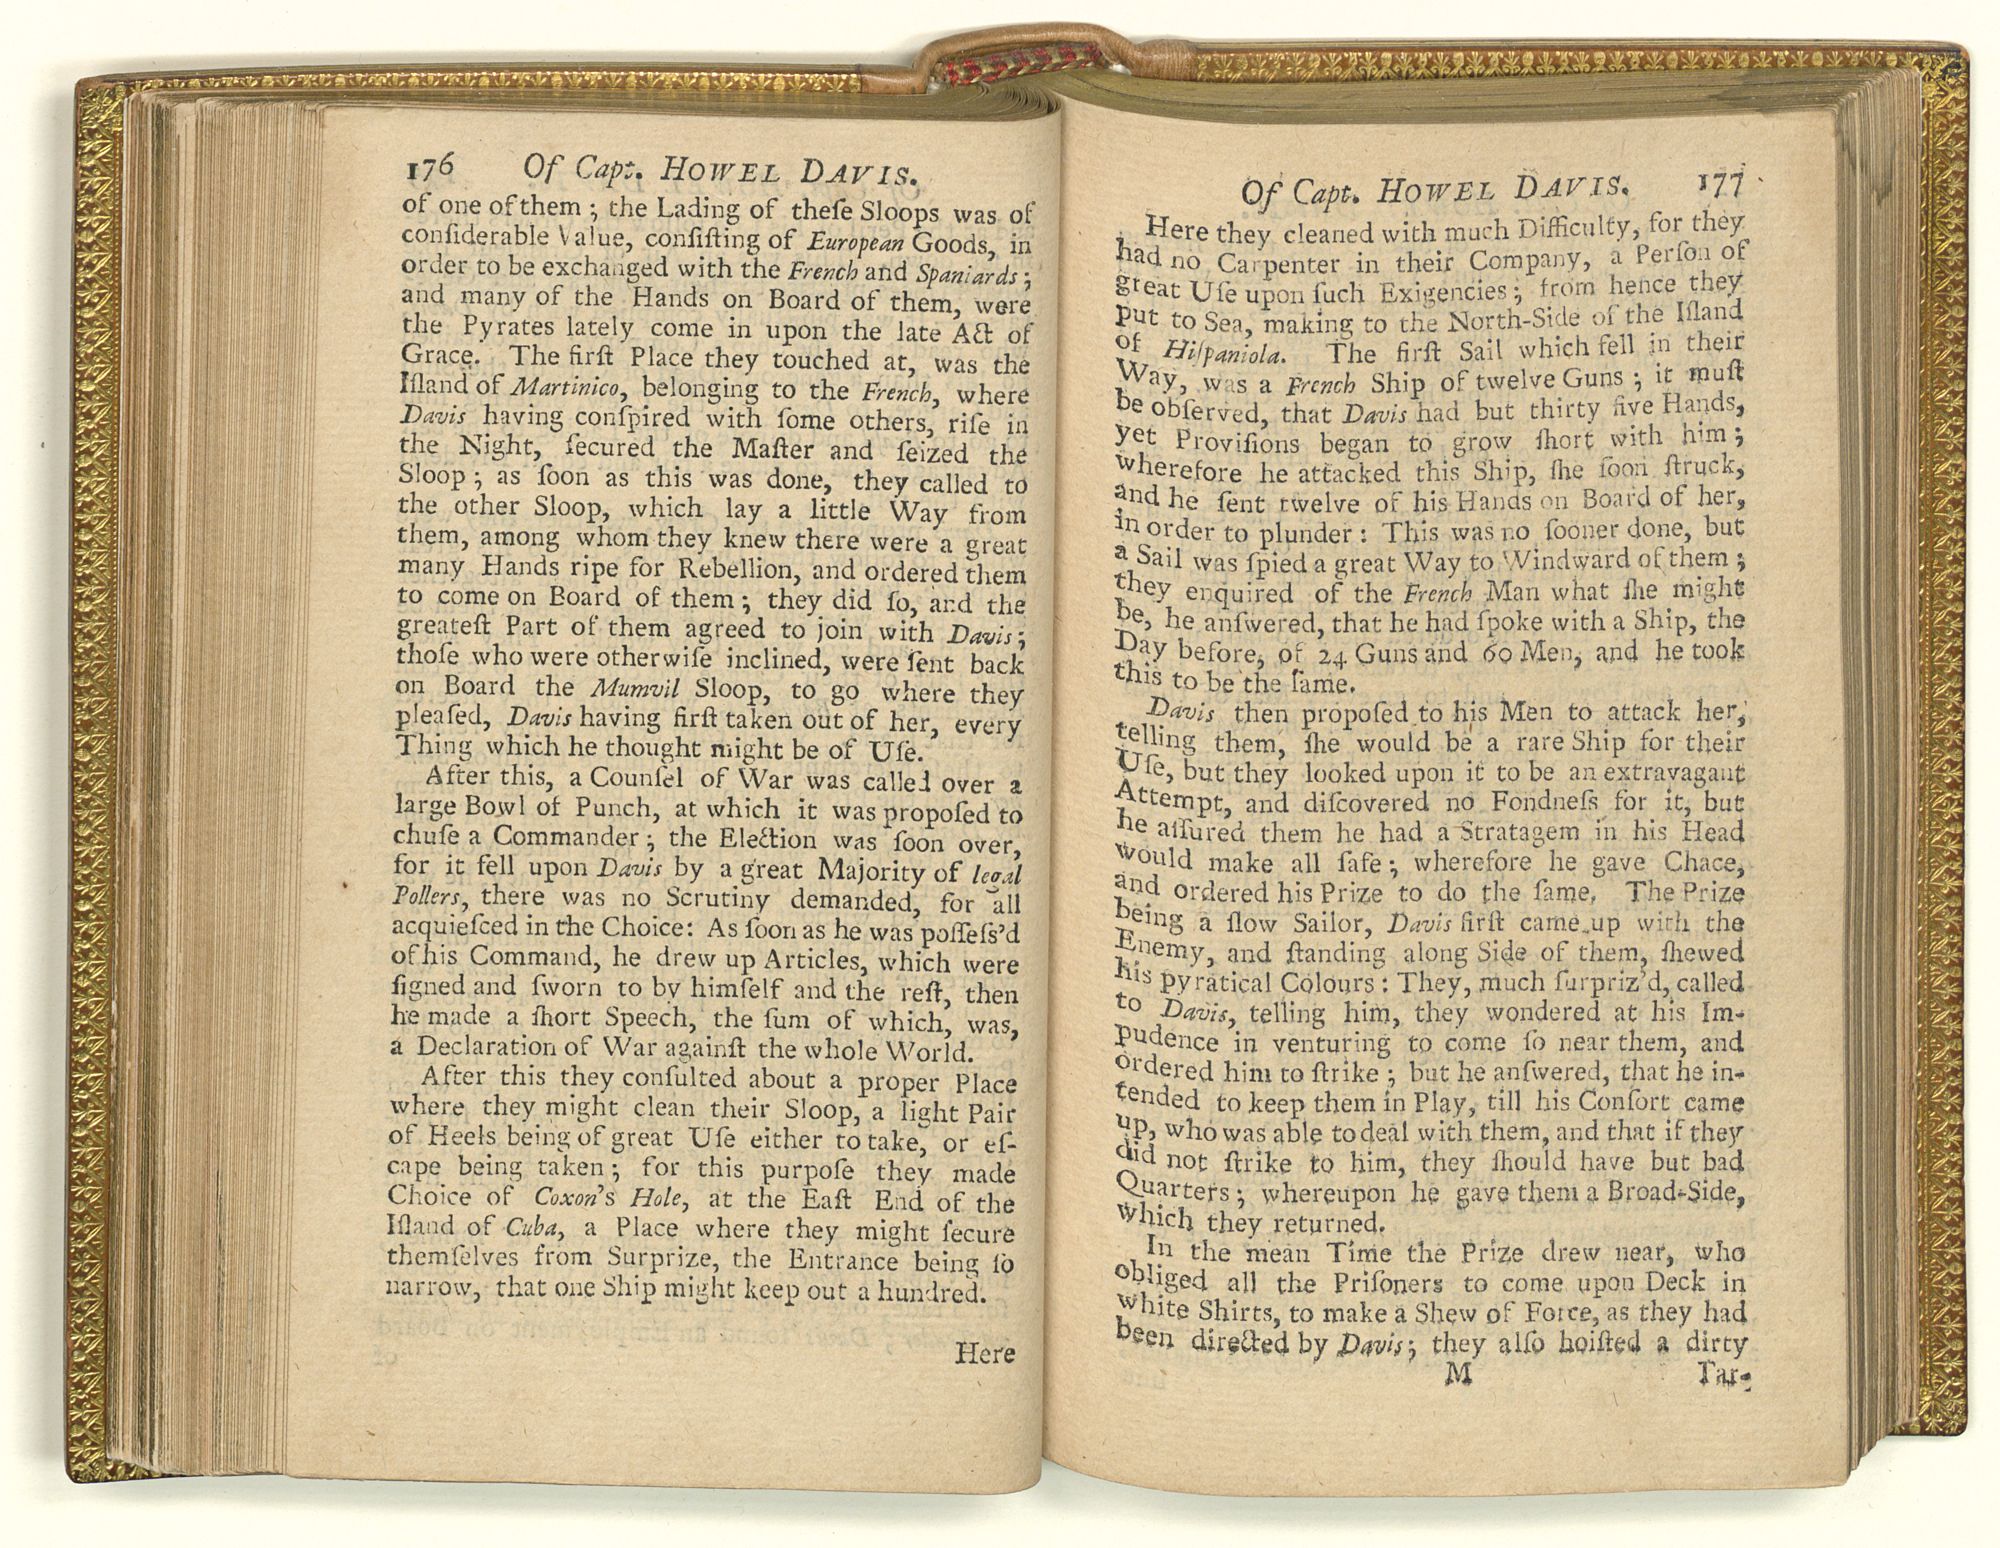 176 Of Capt. HOWEL DAVIS.
of one of them; the Lading of theſe Sloops was of
conſiderable Value, conſiſting of European Goods, in
order to be exchanged with the French and Spaniards;
and many of the Hands on Board of them, were
the Pyrates lately come in upon the late Act of
Grace. The firſt Place they touched at, was the
Iſland of Martinico, belonging to the French, where
Davis having conſpired with ſome others, riſe in
the Night, ſecured the Maſter and ſeized the
Sloop; as ſoon as this was done, they called to
the other Sloop, which lay a little Way from
them, among whom they knew there were a great
many Hands ripe for Rebellion, and ordered them
to come on Board of them; they did ſo, and the
greateſt Part of them agreed to join with Davis;
thoſe who were otherwiſe inclined, were ſent back
on Board the Mumvil Sloop, to go where they
pleaſed, Davis having firſt taken out of her, every
Thing which he thought might be of Uſe.
After this, a Counſel of War was called over a
large Bowl of Punch, at which it was propoſed to
chuſe a Commander; the Election was ſoon over,
for it fell upon Davis by a great Majority of legal
Pollers, there was no Scrutiny demanded, for all
acquieſced in the Choice: As ſoon as he was poſſeſs'd
of his Command, he drew up Articles, which were
ſigned and ſworn to by himſelf and the reſt, then
he made a ſhort Speech, the ſum of which, was,
a Declaration of War againſt the whole World.
After this they conſulted about a proper Place
where they might clean their Sloop, a light Pair
of Heels being of great Uſe either to take, or eſ-
cape being taken; for this purpoſe they made
Choice of Coxon's Hole, at the Eaſt End of the
Iſland of Cuba, a Place where they might ſecure
themſelves from Surprize, the Entrance being ſo
narrow, that one Ship might keep out a hundred.
Here
Of Capt. HOWEL DAVIS. 177
Here they cleaned with much Difficulty, for they
had no Carpenter in their Company, a Perſon of
great Uſe upon ſuch Exigencies; from hence they
put to Sea, making to the North-Side of the Iſland
of Hiſpaniola. The firſt Sail which fell in their
Way, was a French Ship of twelve Guns; it muſt
be obſerved, that Davis had but thirty five Hands,
yet Proviſions began to grow ſhort with him;
wherefore he attacked this Ship, ſhe ſoon ſtruck,
and he ſent twelve of his Hands on Board of her,
in order to plunder: This was no ſooner done, but
a Sail was ſpied a great Way to Windward of them;
they enquired of the French Man what ſhe might
be, he anſwered, that he had ſpoke with a Ship, the
Day before, of 24 Guns and 60 Men, and he took
this to be the ſame.
Davis then propoſed to his Men to attack her,
telling them, ſhe would be a rare Ship for their
Uſe, but they looked upon it to be an extravagant
Attempt, and diſcovered no Fondneſs for it, but
he aſſured them he had a Stratagem in his Head
would make all ſafe; wherefore he gave Chace,
and ordered his Prize to do the ſame. The Prize
being a ſlow Sailor, Davis firſt came up with the
Enemy, and ſtanding along Side of them, ſhewed
his pyratical Colours: They, much ſurpriz'd, called
to Davis, telling him, they wondered at his Im-
pudence in venturing to come ſo near them, and
ordered him to ſtrike; but he anſwered, that he in-
tended to keep them in Play, till his Conſort came
up, who was able to deal with them, and that if they
did not ſtrike to him, they ſhould have but bad
Quarters; whereupon he gave them a Broad-Side,
which they returned.
In the mean Time the Prize drew near, who
obliged all the Priſoners to come upon Deck in
white Shirts, to make a Shew of Force, as they had
been directed by Davis; they alſo hoiſted a dirty
M Tar-